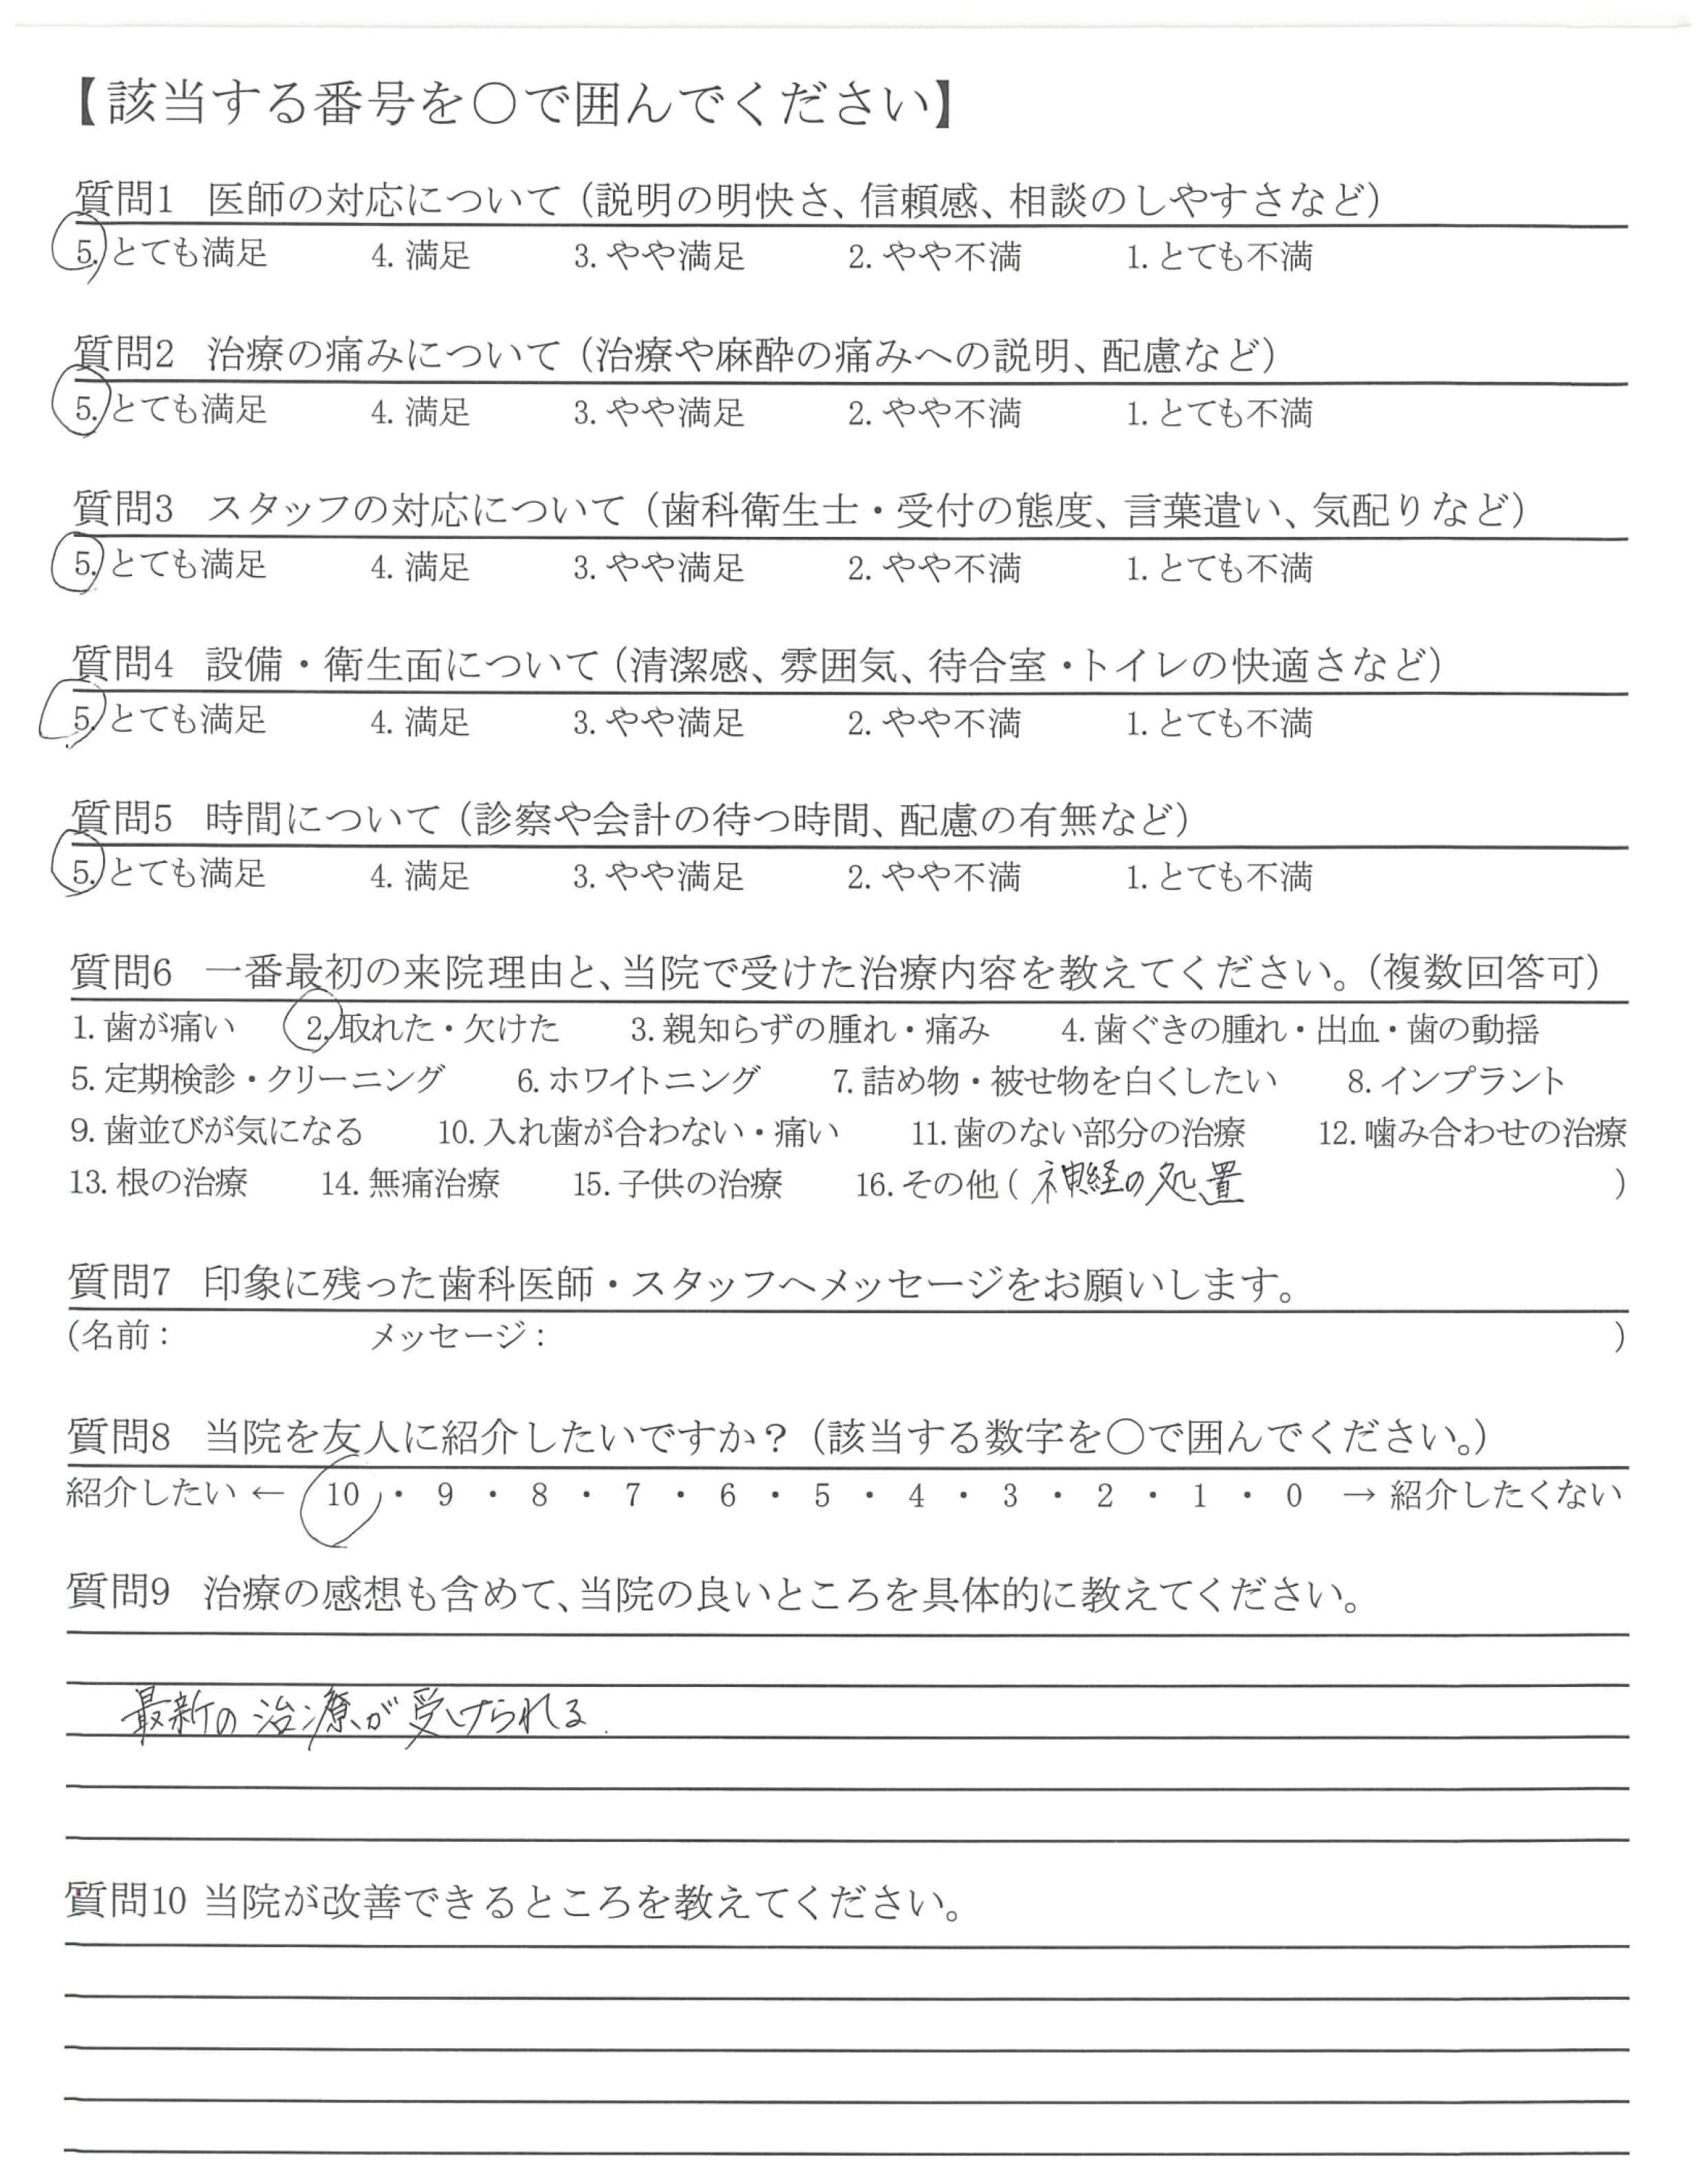 【該当する番号を○で囲んでください】
質問1 医師の対応について（説明の明快さ、信頼感、相談のしやすさなど）
5. とても満足 4. 満足 3. やや満足 2. やや不満 1. とても不満
質問2 治療の痛みについて（治療や麻酔の痛みへの説明、配慮など）
5. とても満足 4. 満足 3. やや満足 2. やや不満 1. とても不満
質問3 スタッフの対応について（歯科衛生士・受付の態度、言葉遣い、気配りなど）
5. とても満足 4. 満足 3. やや満足 2. やや不満 1. とても不満
質問4 設備・衛生面について（清潔感、雰囲気、待合室・トイレの快適さなど）
5. とても満足 4. 満足 3. やや満足 2. やや不満 1. とても不満
質問5 時間について（診察や会計の待つ時間、配慮の有無など）
5. とても満足 4. 満足 3. やや満足 2. やや不満 1. とても不満
質問6 一番最初の来院理由と、当院で受けた治療内容を教えてください。（複数回答可）
1. 歯が痛い 2. 取れた・欠けた 3. 親知らずの腫れ・痛み 4. 歯ぐきの腫れ・出血・歯の動揺
5. 定期検診・クリーニング 6. ホワイトニング 7. 詰め物・被せ物を白くしたい 8. インプラント
9. 歯並びが気になる 10. 入れ歯が合わない・痛い 11. 歯のない部分の治療 12. 噛み合わせの治療
13. 根の治療 14. 無痛治療 15. 子供の治療 16. その他（ 神経の処置 ）
質問7 印象に残った歯科医師・スタッフへメッセージをお願いします。
（名前： メッセージ： ）
質問8 当院を友人に紹介したいですか？（該当する数字を○で囲んでください。）
紹介したい ← 10 ・ 9 ・ 8 ・ 7 ・ 6 ・ 5 ・ 4 ・ 3 ・ 2 ・ 1 ・ 0 → 紹介したくない
質問9 治療の感想も含めて、当院の良いところを具体的に教えてください。
最新の治療が受けられる.
質問10 当院が改善できるところを教えてください。